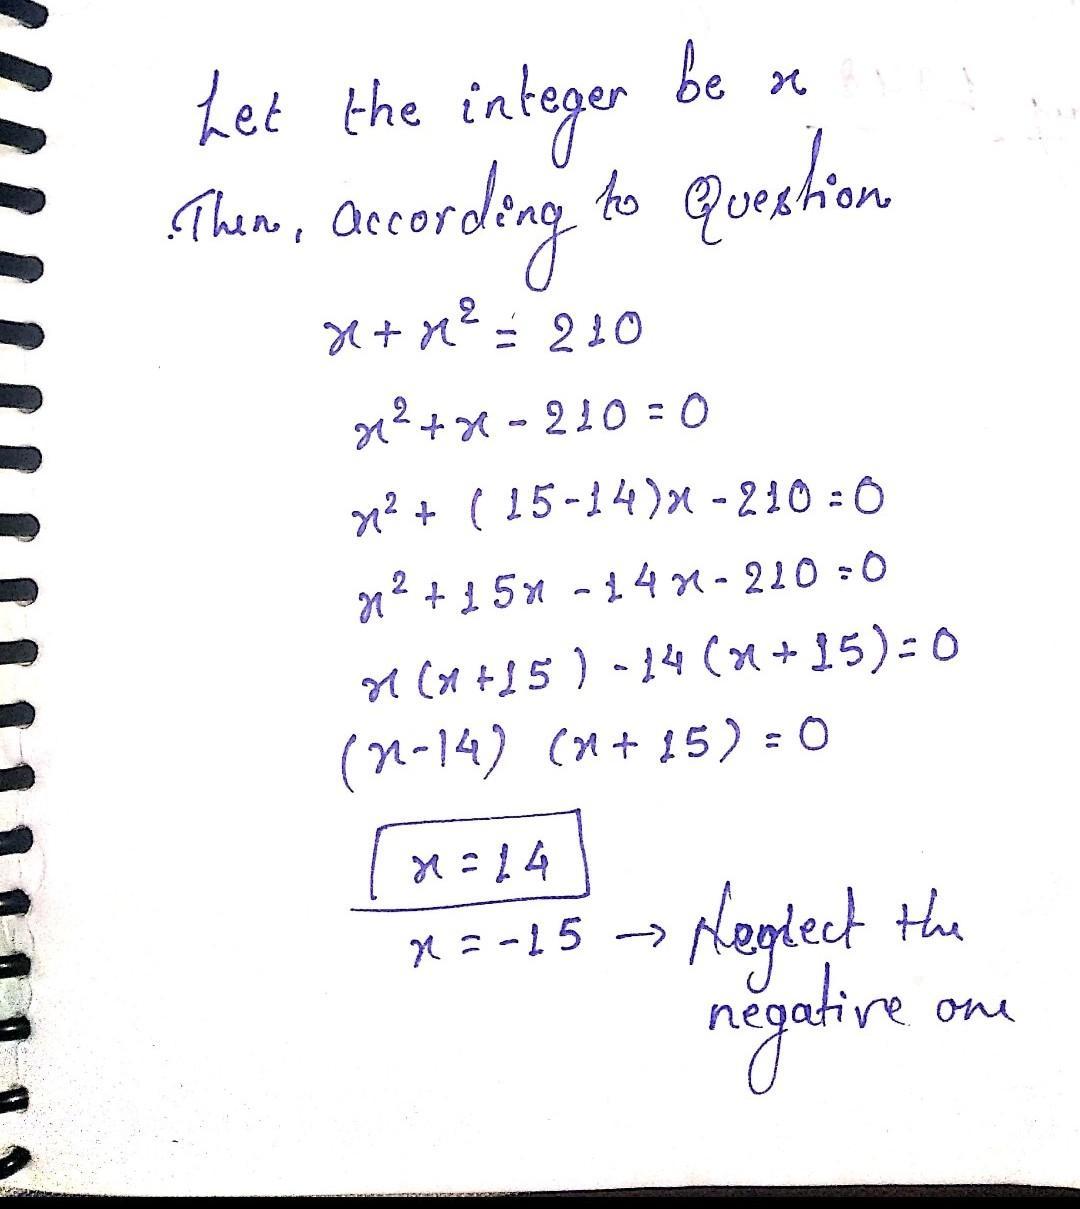 Let the integer be x
Then, according to Question
x + x² = 210
x² + x - 210 = 0
x² + (15-14)x - 210 = 0
x² + 15x - 14x - 210 = 0
x(x+15) - 14(x+15) = 0
(x-14) (x+15) = 0
x = 14
x = -15 → Neglect the
negative one